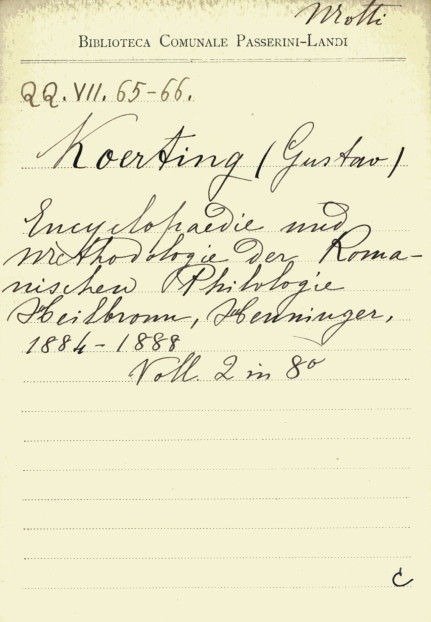 Mrotti
BIBLIOTECA COMUNALE PASSERINI-LANDI
QQ.VII.65-66.
Koerting (Gustav)
Encyclopaedie und
Methodologie der Roma-
nischen Philologie
Heilbronn, Henninger,
1884-1888
Voll. 2 in 8º
C